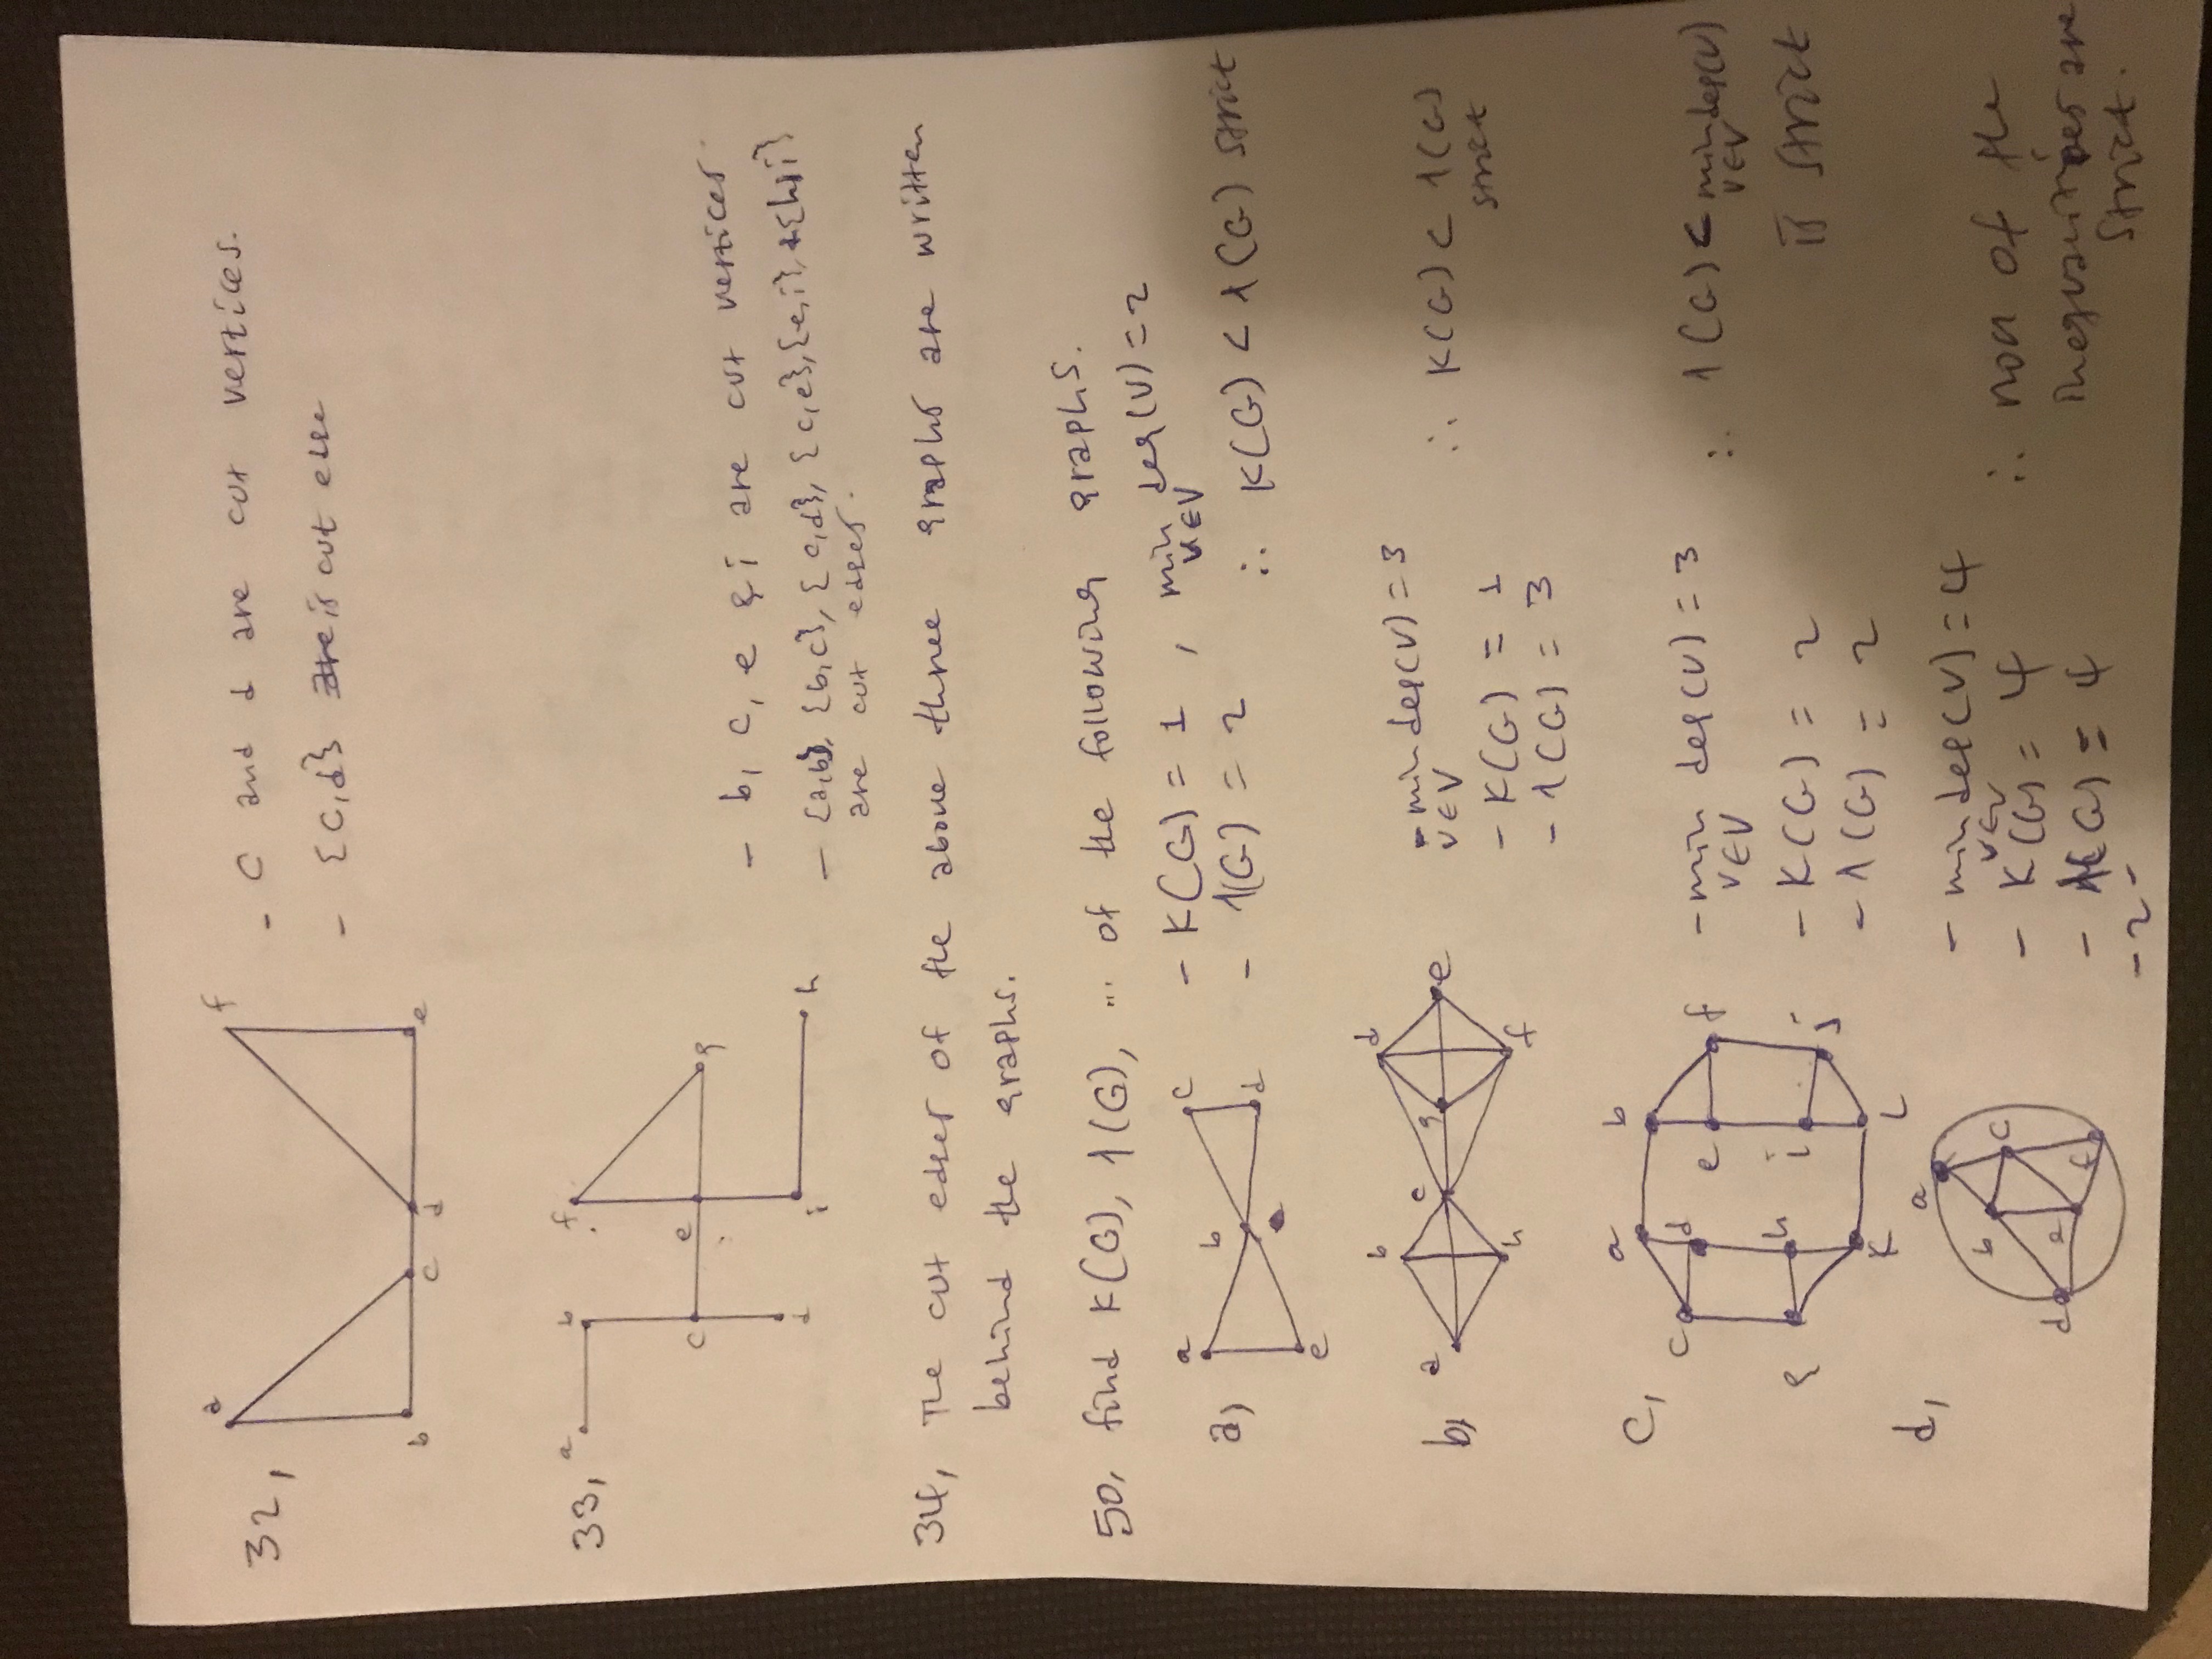 32,
a
f
b
c
d
e
- c and d are cut vertices.
- {c,d} is cut edge
33,
a
b
f
c
e
g
d
i
h
- b, c, e & i are cut vertices
- {a,b}, {b,c}, {c,d}, {c,e}, {e,i}, & {h,i}
are cut edges.
34, The cut edges of the above three graphs are written
behind the graphs.
50, find K(G), λ(G), ... of the following graphs.
a)
a
b
c
d
e
- K(G) = 1 , min deg(v) = 2
v∈V
- λ(G) = 2 ∴ K(G) < λ(G) strict
b)
a
b
c
d
g
e
h
f
- min deg(v) = 3
v∈V
- K(G) = 1
- λ(G) = 3
∴ K(G) < λ(G)
strict
c,
a
b
c
d
e
f
g
h
i
j
K
L
- min deg(v) = 3
v∈V
- K(G) = 2
- λ(G) = 2
∴ λ(G) < min deg(v)
v∈V
is strict
d,
a
b
c
d
e
f
- min deg(v) = 4
v∈V
- K(G) = 4
- λ(G) = 4
∴ non of the
inequalities are
strict.
- 2 -